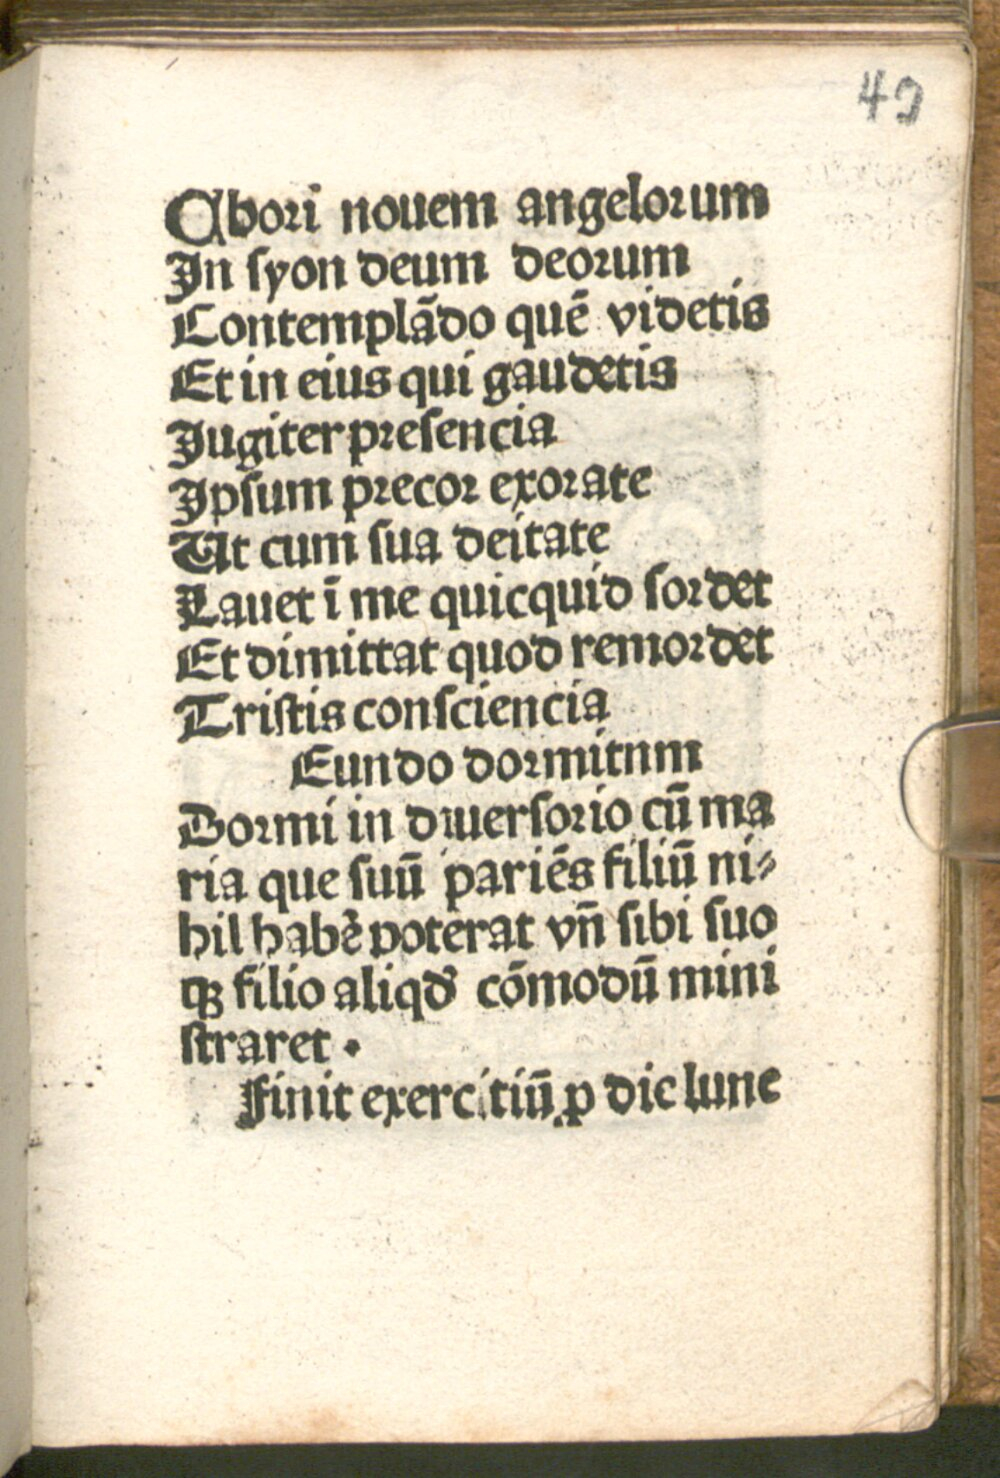 49
Chori nouem angelorum
In syon deum deorum
Contemplādo quē videtis
Et in eius qui gaudetis
Jugiter presencia
Ipsum precor exorate
Ut cum sua deitate
Lauet ī me quicquid sordet
Et dimittat quod remordet
Tristis consciencia
Eundo dormitum
Dormi in diuersorio cū ma
ria que suū pariēs filiū ni⸗
hil habēt poterat vñ sibi suo
qꝫ filio aliqd̕ cōmodū mini
straret .
Finit exercitiū ꝓ die lune